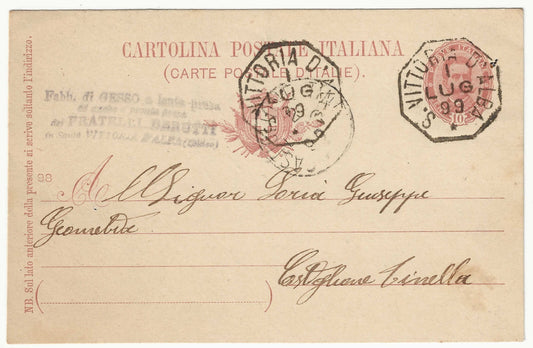 CARTOLINA POSTALE ITALIANA
(CARTE POSTALE D'ITALIE).
Fabb. di GESSO a lenta presa
dei FRATELLI BERUTTI
in Santa VITTORIA D'ALBA (Cuneo)
S. VITTORIA D'ALBA
1
LUG
99
VITTORIA D'AL
1
LUG
99
10
98
All Signor Soria Giuseppe
Geometra
Castiglione Tinella
NB. Sul lato anteriore della presente si scrive soltanto l'indirizzo.